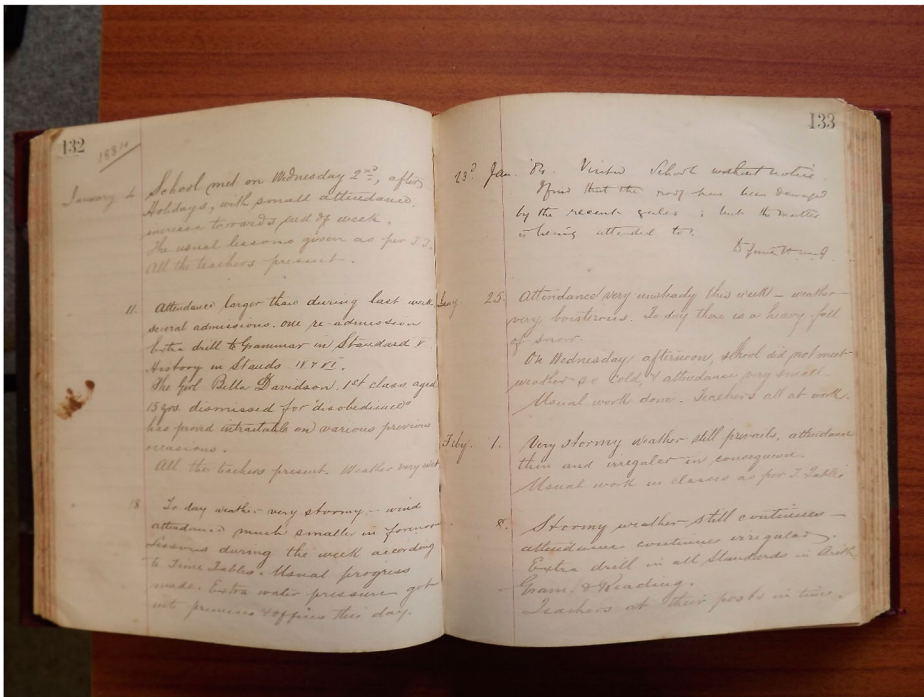 132
1884
January 4 School met on Wednesday 2nd, after
Holidays, with small attendance,
increase towards end of week.
The usual lessons given as per T.T.
All the teachers present.
11. Attendance larger than during last week,
several admissions. one re-admission
Extra drill to Grammar in Standard V.
History in Stands. IV & VI.
The Girl Bella Davidson. 1st class aged
15 yrs. dismissed for "disobedience"
has proved intractable on various previous
occasions.
All the teachers present. Weather very wet
18 To day weather very stormy - wind
attendance much smaller in forenoon
Lessons during the week according
to Time Tables. Usual progress
made. Extra water pressure got
into premises & offices this day.
133
23d Jan. '84. Visited School without notice
I find that the roof has been damaged
by the recent gales; but the matter
is being attended to.
Jany 25. Attendance very unsteady this week - weather
very boisterous. To day there is a heavy fall
of snow.
On Wednesday afternoon, school did not meet
weather so cold, & attendance very small.
Usual work done. Teachers all at work.
Feby. 1. Very stormy weather still prevails, attendance
thin and irregular in consequence.
Usual work in classes as per T. Tables
8. Stormy weather still continues -
attendance continues irregular.
Extra drill in all Standards in Arith.
Gram. & Reading.
Teachers at their posts in time.